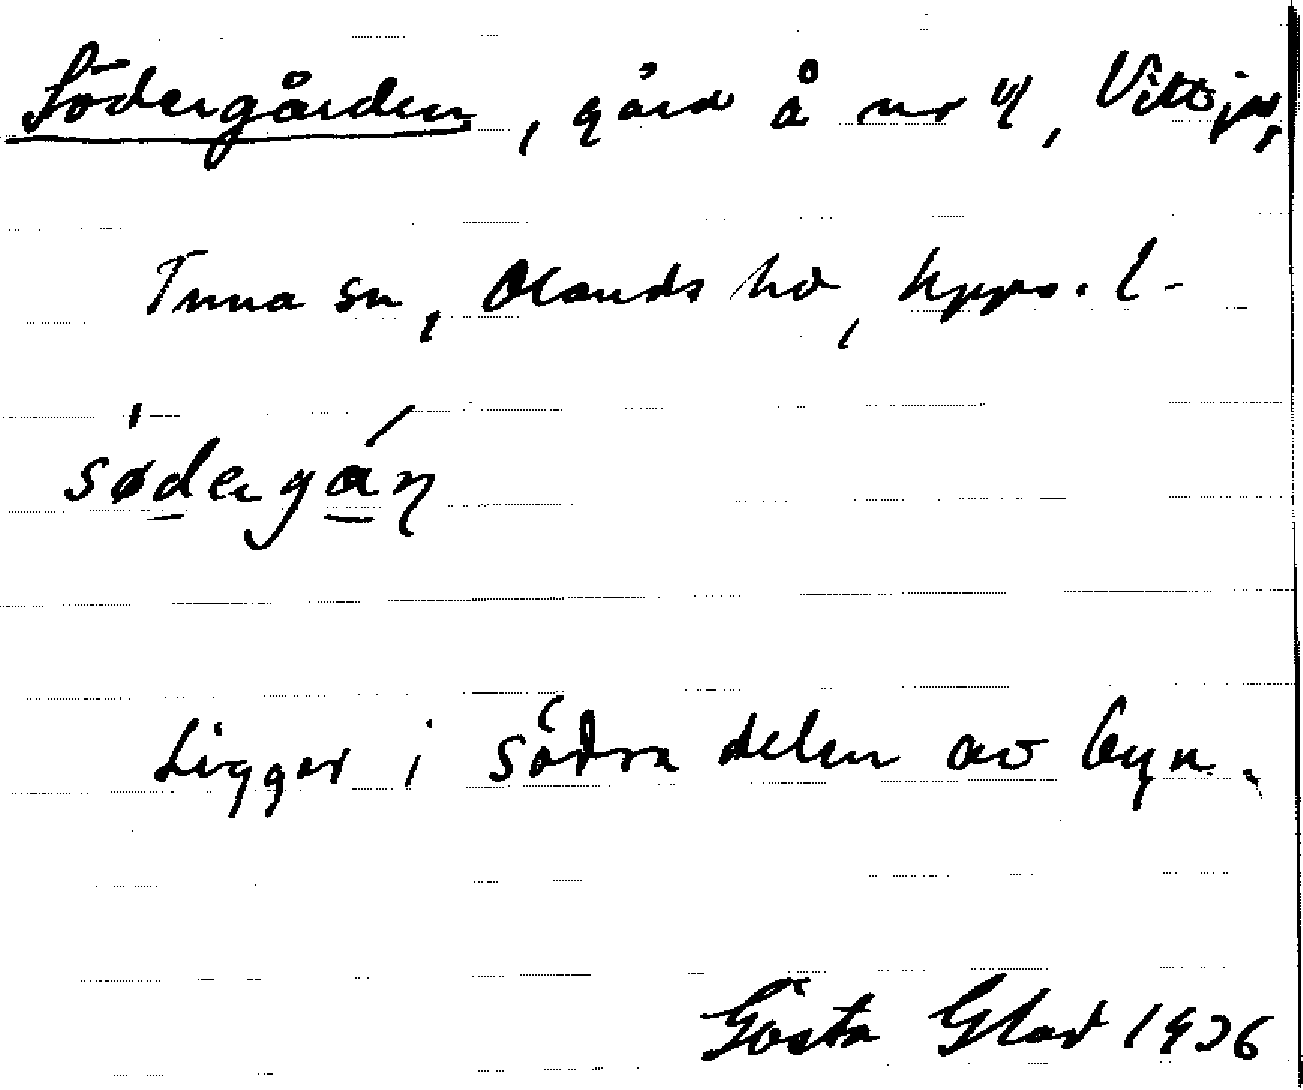 Södergården, gård å nr 4, Vittja,
Tuna sn, Olands hd, Upps. l-
södergán
Ligger i södra delen av byn.
Gösta Glad 1936